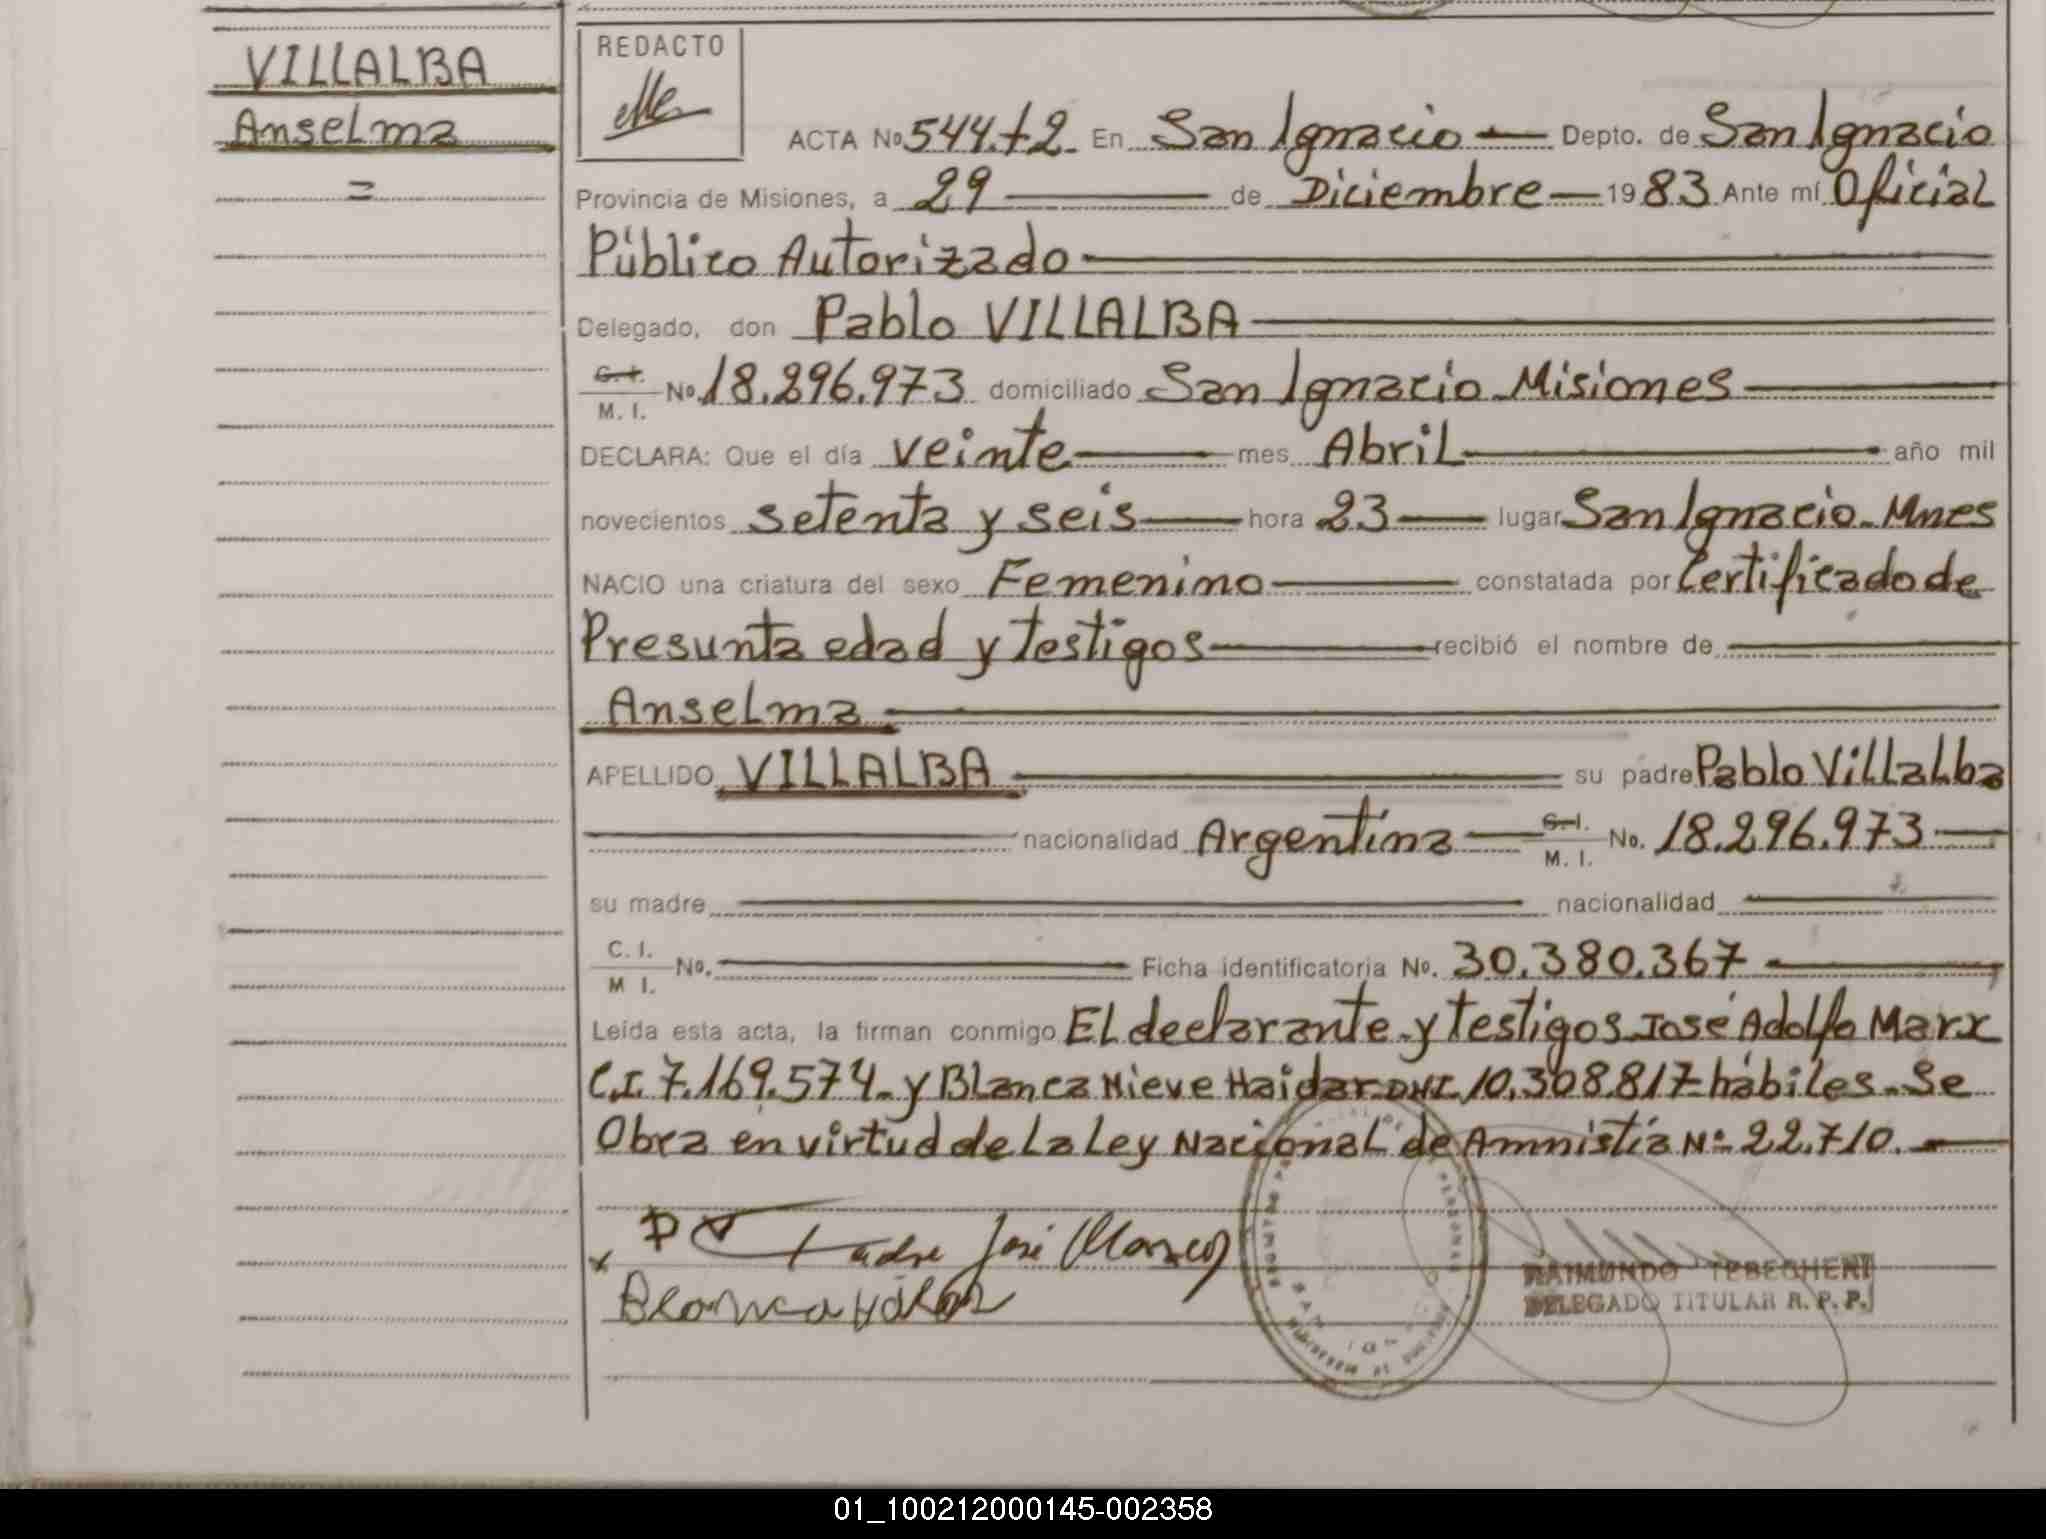 VILLALBA
Anselma
=
REDACTO
ACTA No 544. t 2. En San Ignacio Depto. de San Ignacio
Provincia de Misiones, a 29 de Diciembre 1983 Ante mí Oficial
Público Autorizado
Delegado, don Pablo VILLALBA
C. I. M. I. No. 18.296.973 domiciliado San Ignacio Misiones
DECLARA: Que el día veinte mes Abril año mil
novecientos setenta y seis hora 23 lugar San Ignacio - Mnes
NACIO una criatura del sexo Femenino constatada por Certificado de
Presunta edad y testigos recibió el nombre de
Anselma
APELLIDO VILLALBA su padre Pablo Villalba
nacionalidad Argentina C. I. M. I. No. 18.296.973
su madre nacionalidad
C. I. M I. No. Ficha identificatoria No. 30.380.367
Leída esta acta, la firman conmigo El declarante y testigos José Adolfo Marx
C.I. 7.169.574 - y Blanca Nieve Haidar DNI. 10.308.817 hábiles - Se
Obra en virtud de la Ley Nacional de Amnistía Nº 22.710.
Padre José
Blanca
RAIMUNDO TEBEGHENI
DELEGADO TITULAR R. P. P.
01_100212000145-002358